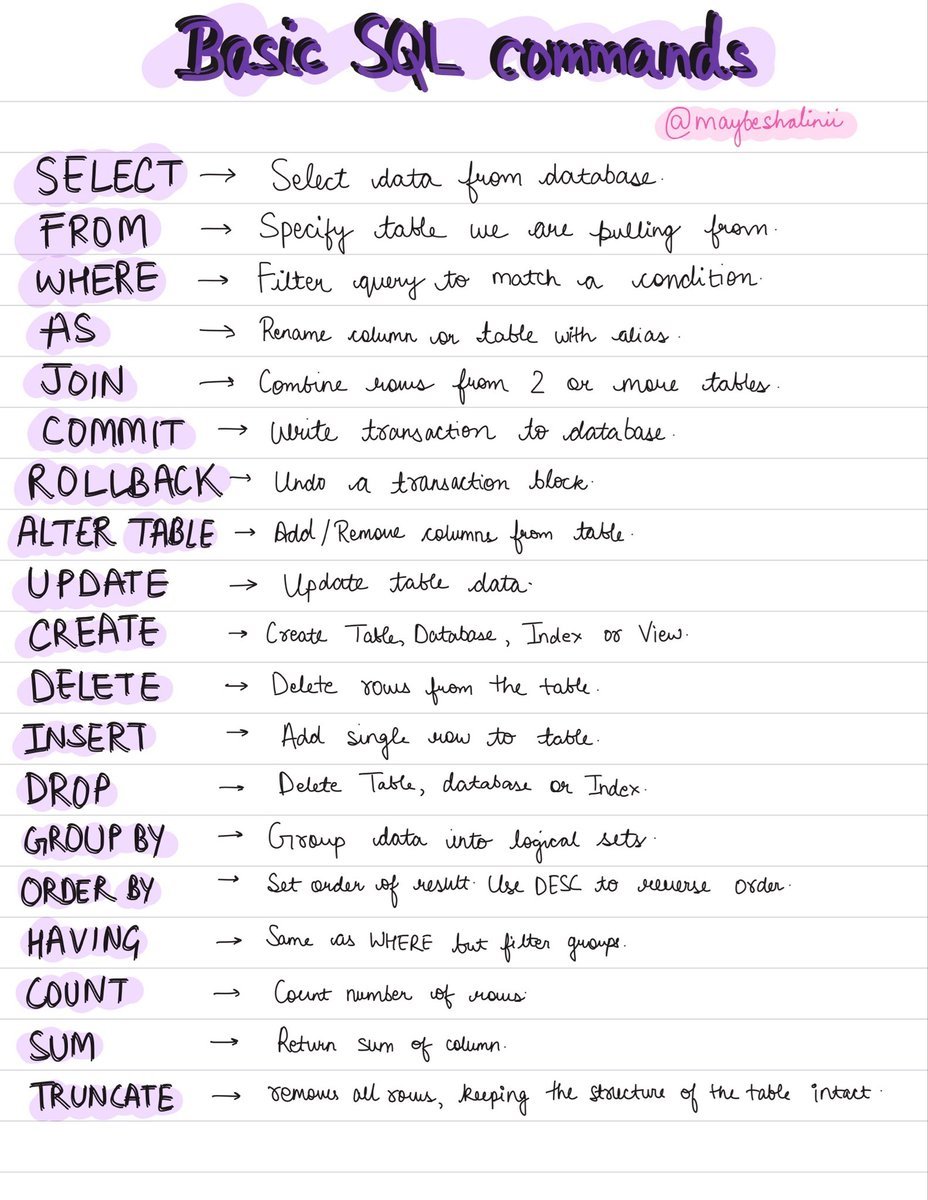 Basic SQL commands
@maybeshalinii
SELECT → Select data from database.
FROM → Specify table we are pulling from.
WHERE → Filter query to match a condition.
AS → Rename column or table with alias.
JOIN → Combine rows from 2 or more tables.
COMMIT → Write transaction to database.
ROLLBACK → Undo a transaction block.
ALTER TABLE → Add/Remove columns from table.
UPDATE → Update table data.
CREATE → Create Table, Database, Index or View.
DELETE → Delete rows from the table.
INSERT → Add single row to table.
DROP → Delete Table, database or Index.
GROUP BY → Group data into logical sets.
ORDER BY → Set order of result. Use DESC to reverse order.
HAVING → Same as WHERE but filter groups.
COUNT → Count number of rows.
SUM → Return sum of column.
TRUNCATE → removes all rows, keeping the structure of the table intact.